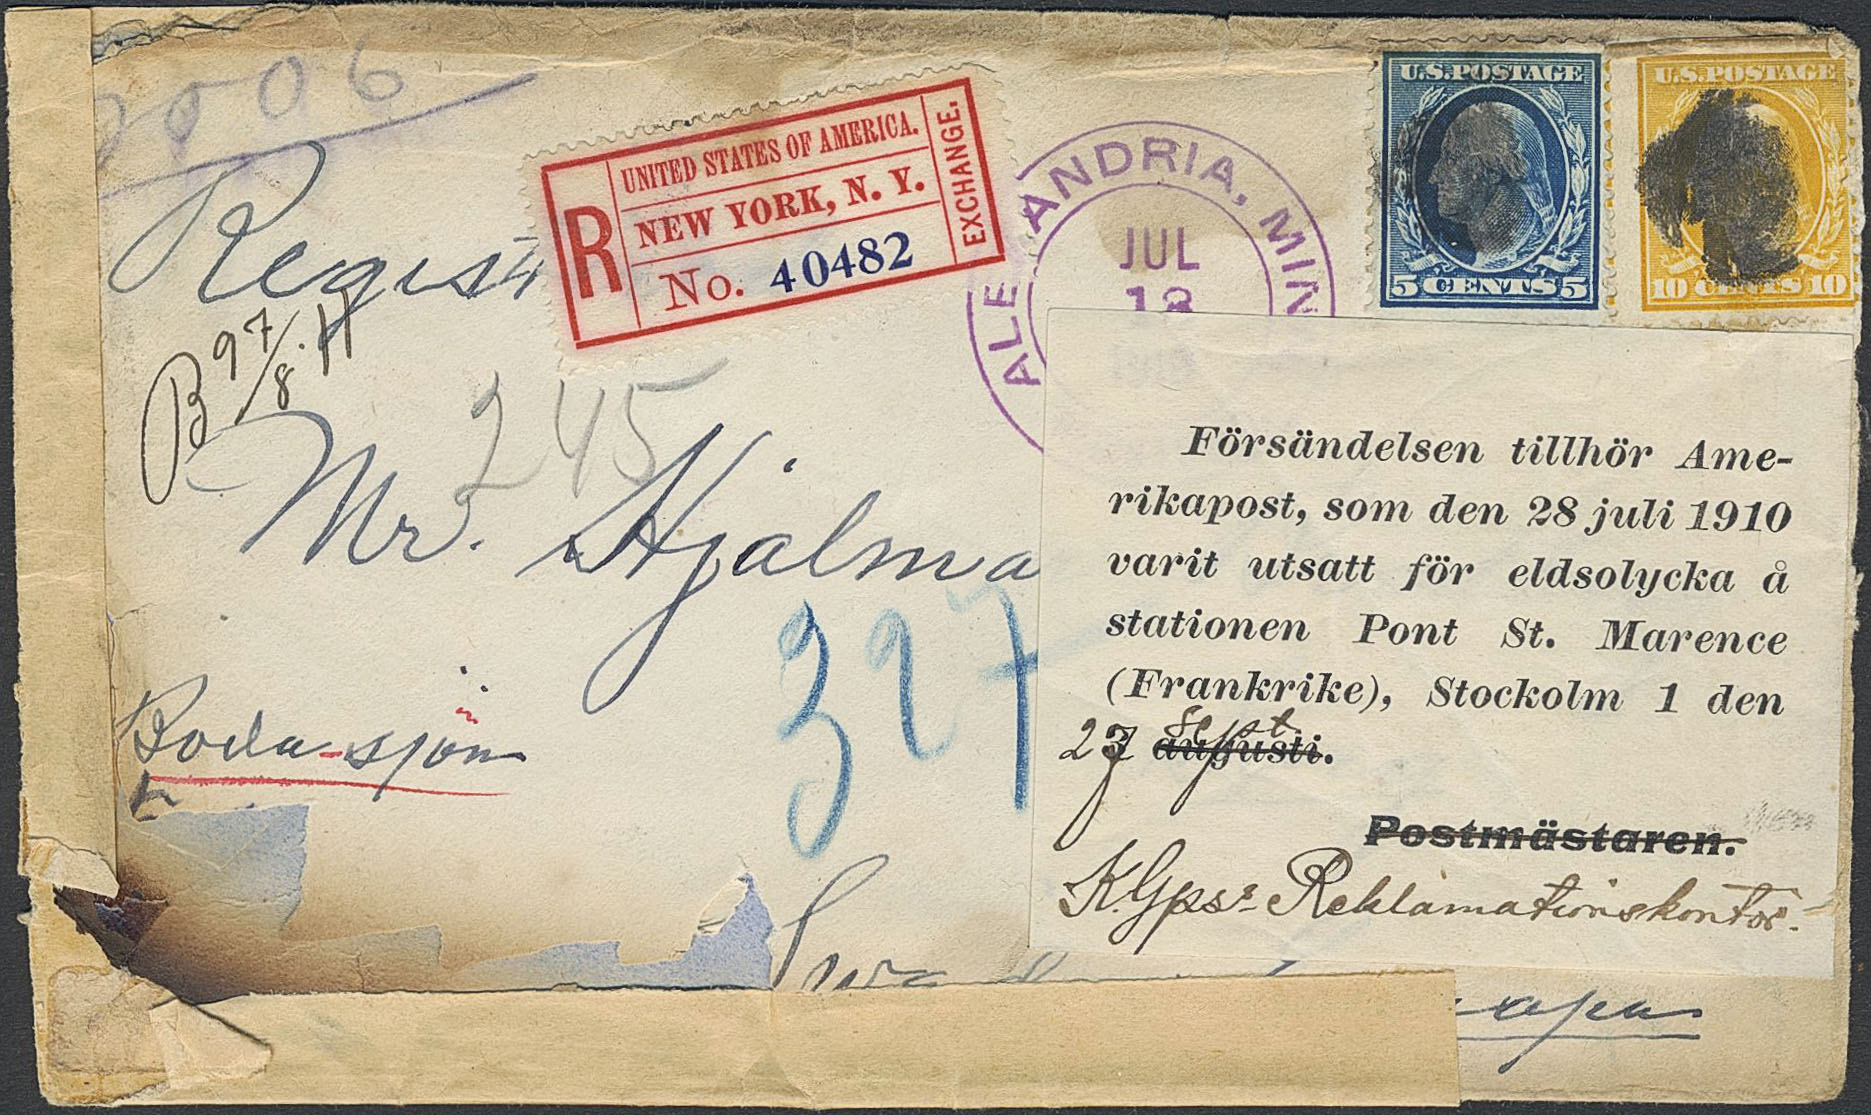 2006
Regist
R
UNITED STATES OF AMERICA.
NEW YORK, N. Y.
No. 40482
EXCHANGE.
ALE ANDRIA, MIN
JUL
18
U.S.POSTAGE
5 CENTS 5
U.S.POSTAGE
10 CENTS 10
B 97/8 H
245
Mr. Hjalma
327
Boda-sjön
Försändelsen tillhör Ame-
rikapost, som den 28 juli 1910
varit utsatt för eldsolycka å
stationen Pont St. Marence
(Frankrike), Stockolm 1 den
sept.
27 augusti.
Postmästaren.
K.Gpss Reklamationskontor.